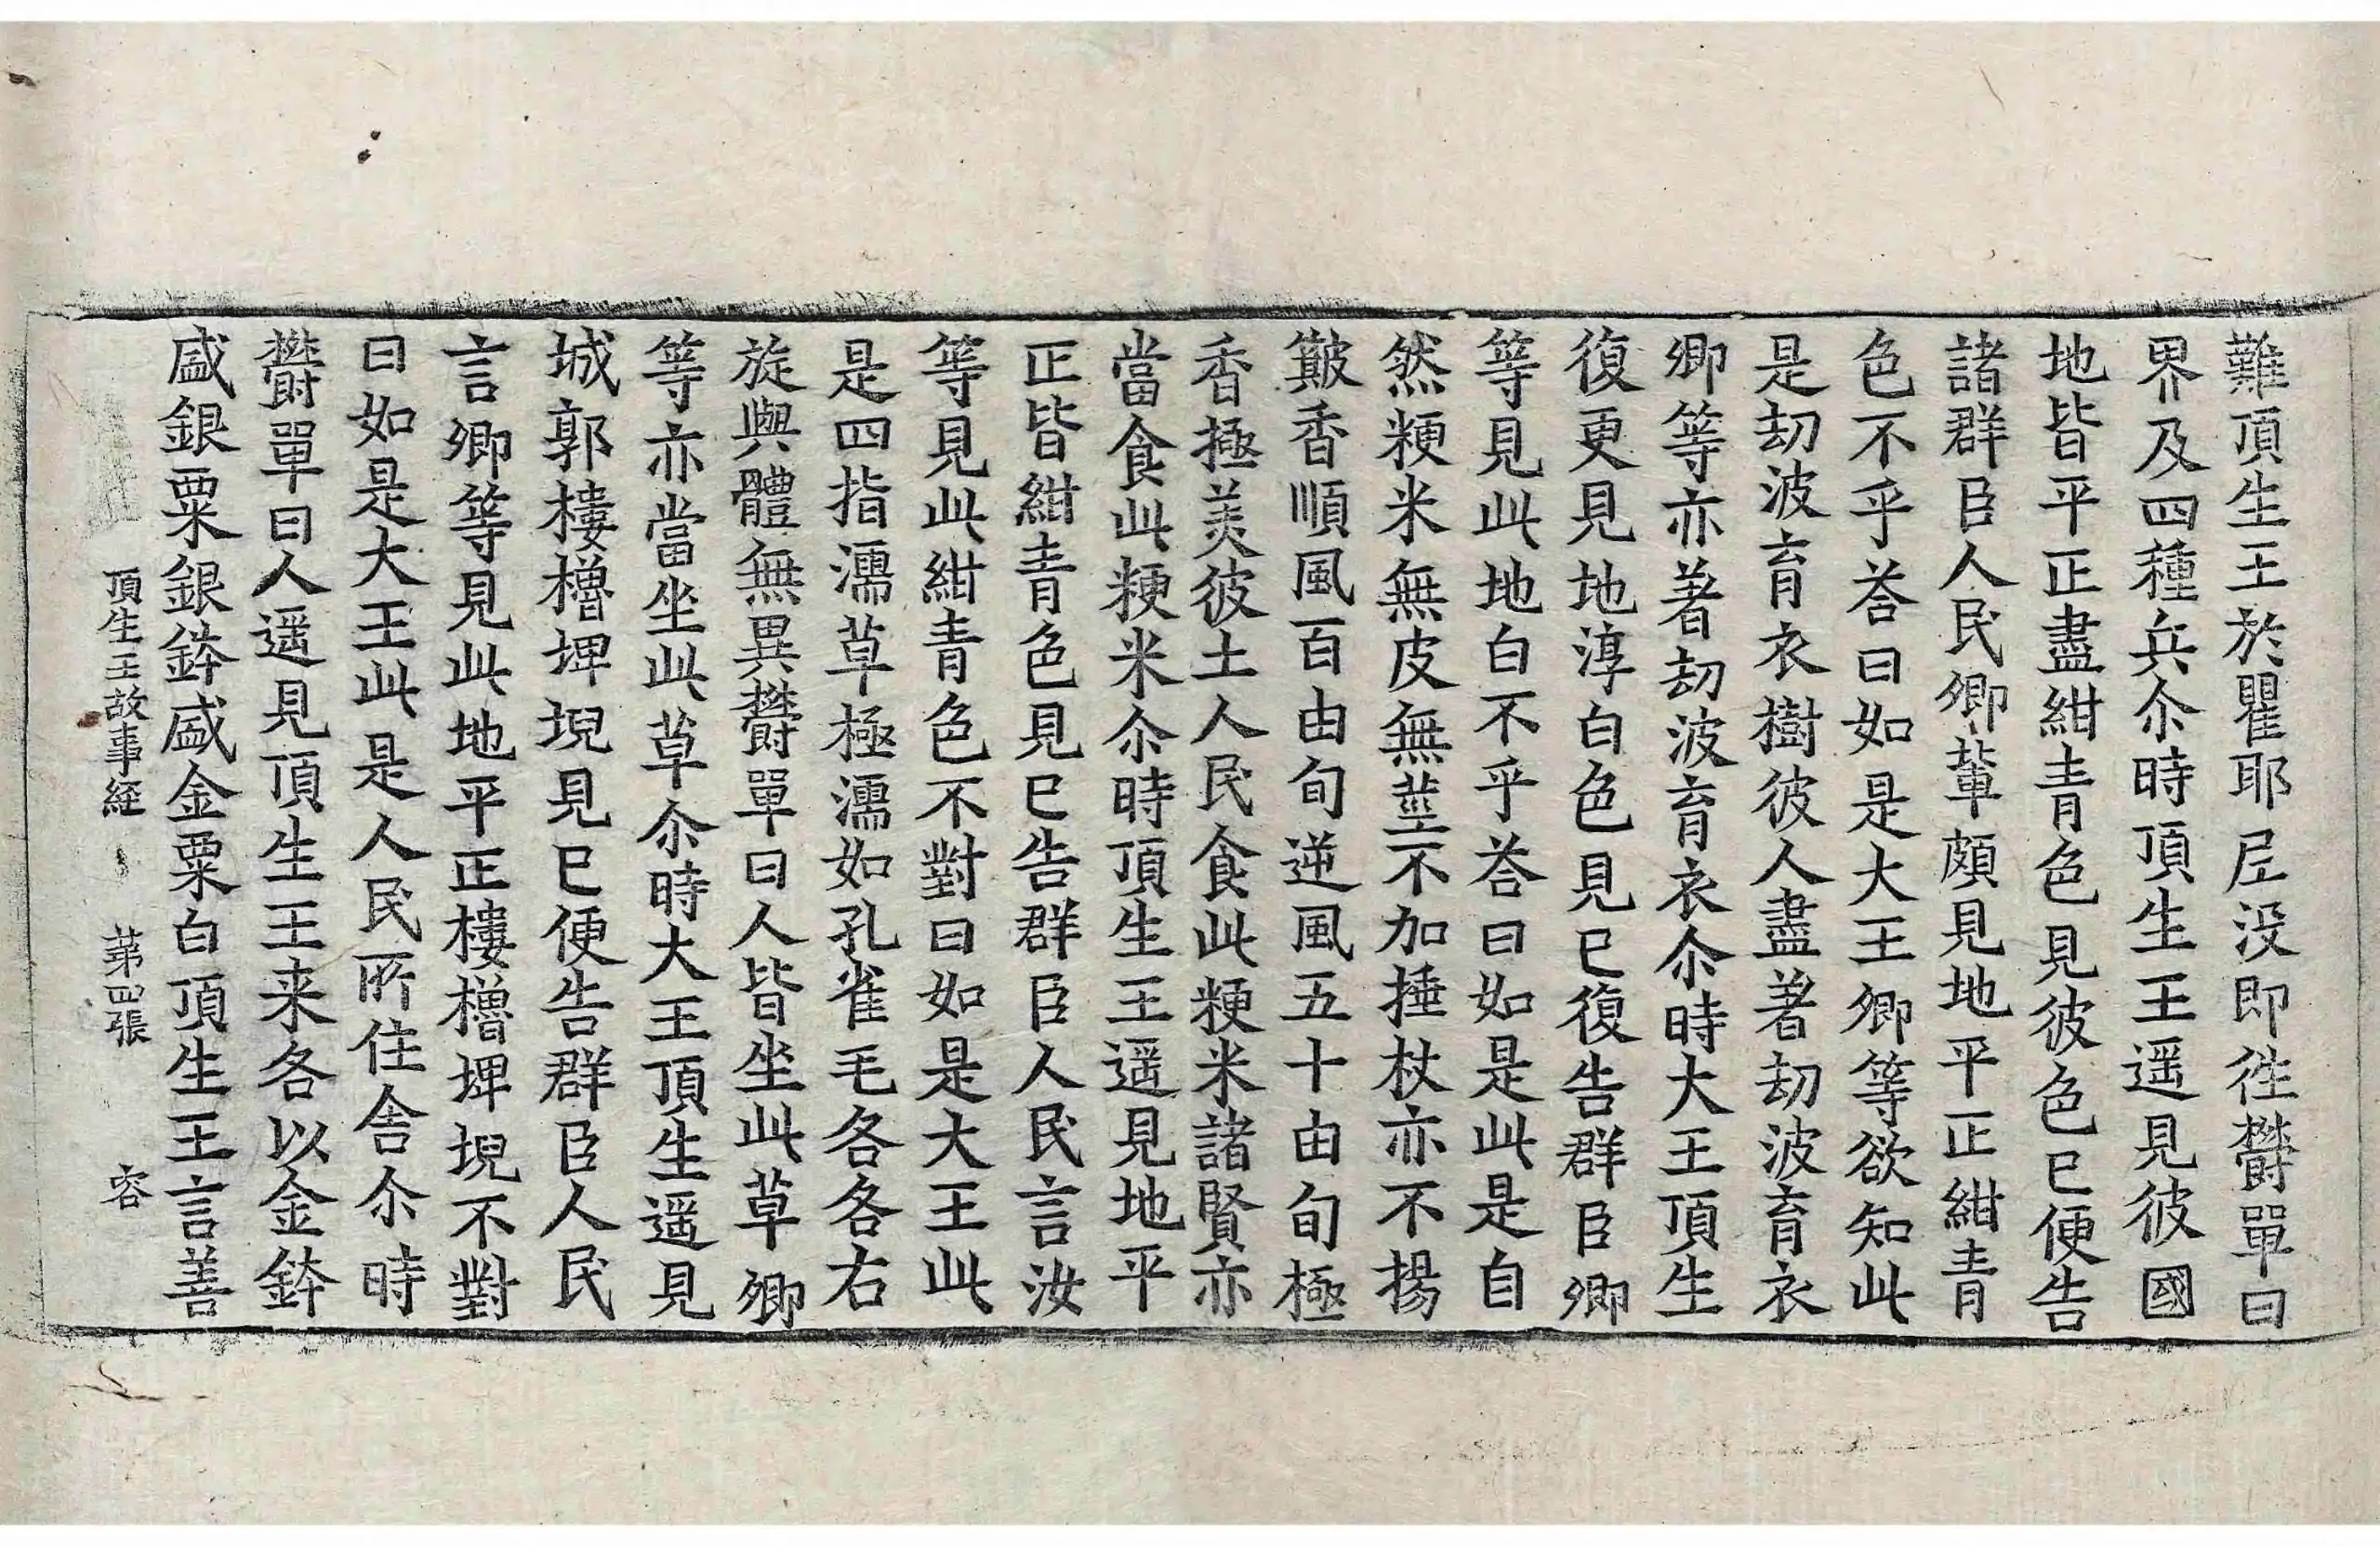 難頂生王於瞿耶尼没即徃欝單曰
界及四種兵尒時頂生王遥見彼國
地皆平正盡紺青色見彼色已便告
諸群臣人民卿軰頗見地平正紺青
色不乎荅曰如是大王卿等欲知此
是劫波育衣樹彼人盡著劫波育衣
卿等亦著劫波育衣尒時大王頂生
復更見地淳白色見已復告群臣卿
等見此地白不乎荅曰如是此是自
然粳米無皮無莖不加捶杖亦不揚
簸香順風百由旬逆風五十由旬極
香極美彼土人民食此粳米諸賢亦
當食此粳米尒時頂生王遥見地平
正皆紺青色見已告群臣人民言汝
等見此紺青色不對曰如是大王此
是四指濡草極濡如孔雀毛各各右
旋與體無異欝單曰人皆坐此草卿
等亦當坐此草尒時大王頂生遥見
城郭樓櫓埤堄見已便告群臣人民
言卿等見此地平正樓櫓埤堄不對
曰如是大王此是人民所住舎尒時
欝單曰人遥見頂生王来各以金鉢
盛銀粟銀鉢盛金粟白頂生王言善
頂生王故事経 第四張 容